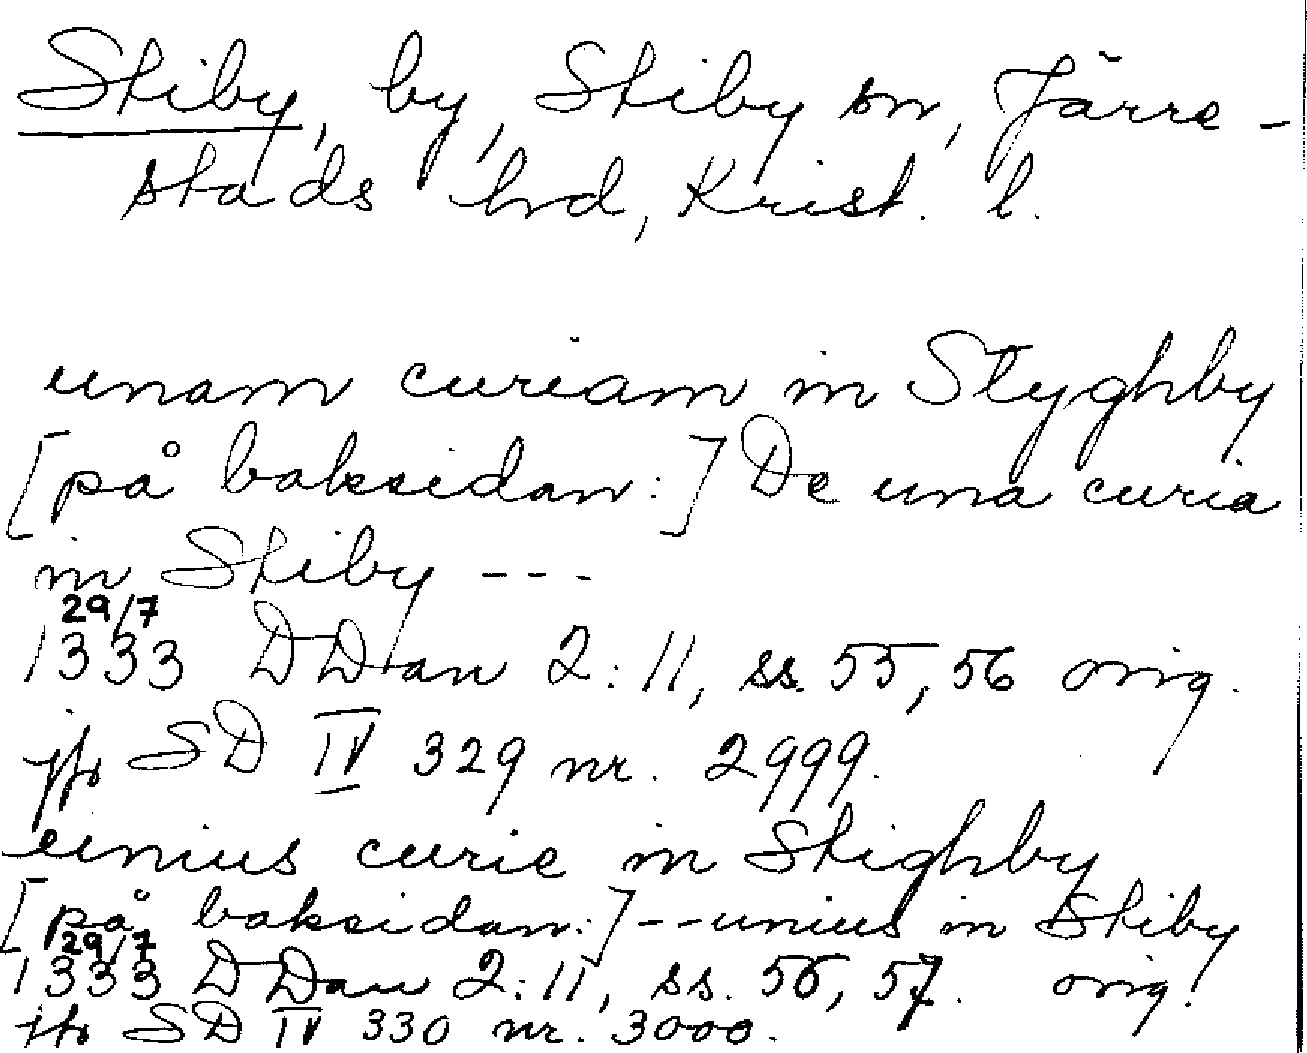 Stiby, by, Stiby sn, Järre-
stads hrd, Krist. l.
unam curiam in Styghby
[på baksidan:] De una curia
in Stiby ---
29/7
1333 DDan 2:11, ss. 55, 56 orig.
jfr SD IV 329 nr. 2999.
unius curie in Stighby
[på baksidan:] --unius in Stiby
29/7
1333 DDan 2:11, ss. 56, 57. orig.
jfr SD IV 330 nr. 3000.